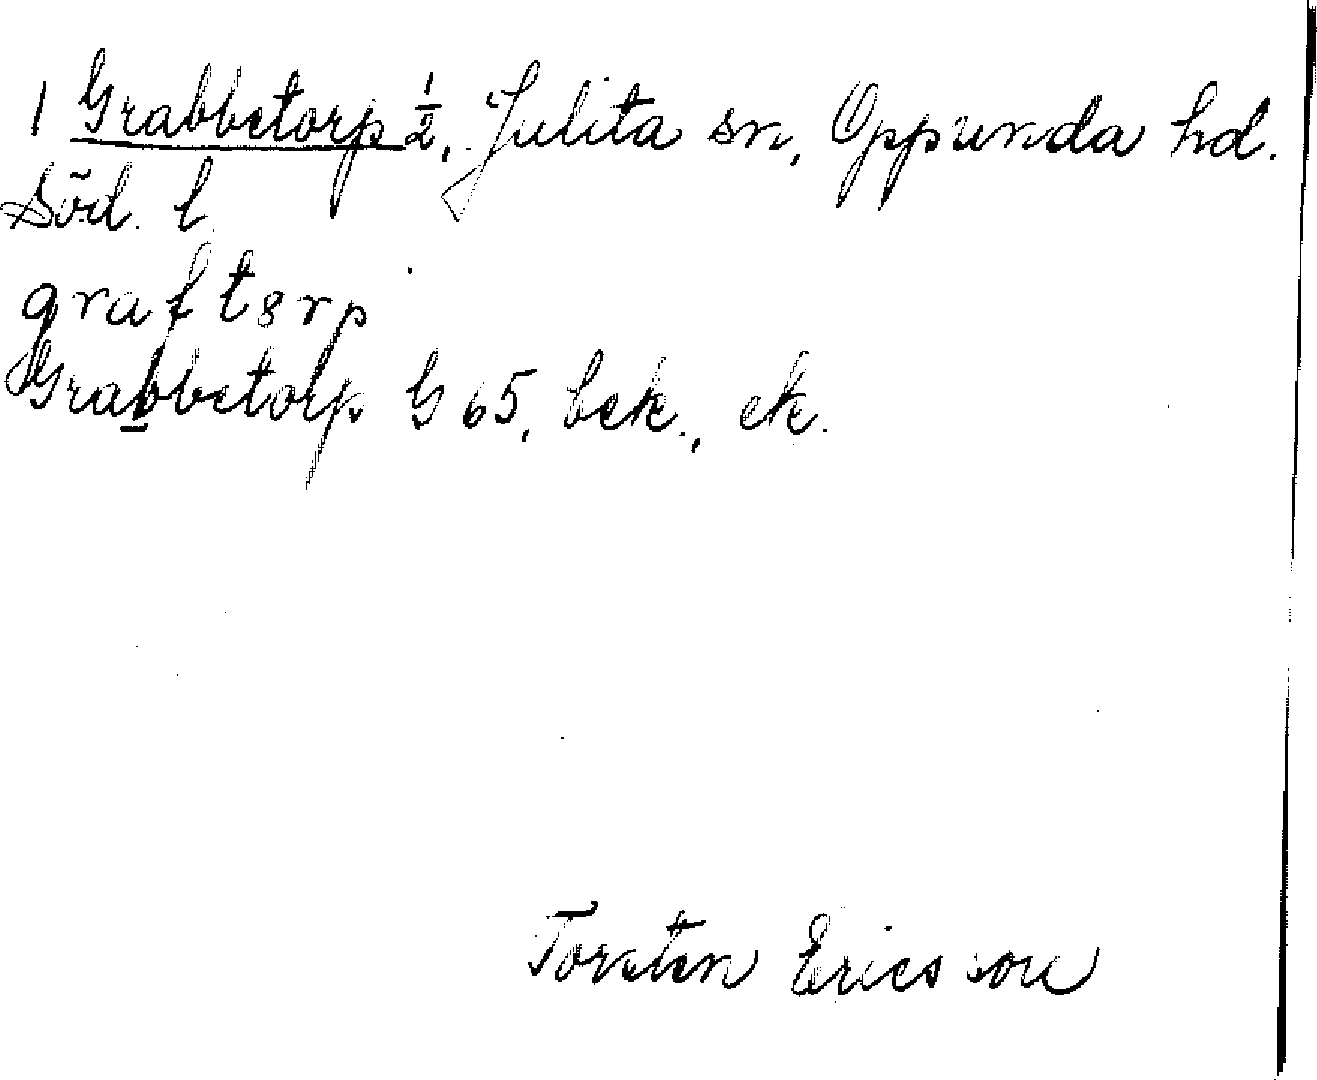 1 Grabbetorp ½, Julita sn, Oppunda hd.
Söd. l.
graftsrp
Grabbetorp G 65, bek., ek.
Torsten Ericsson